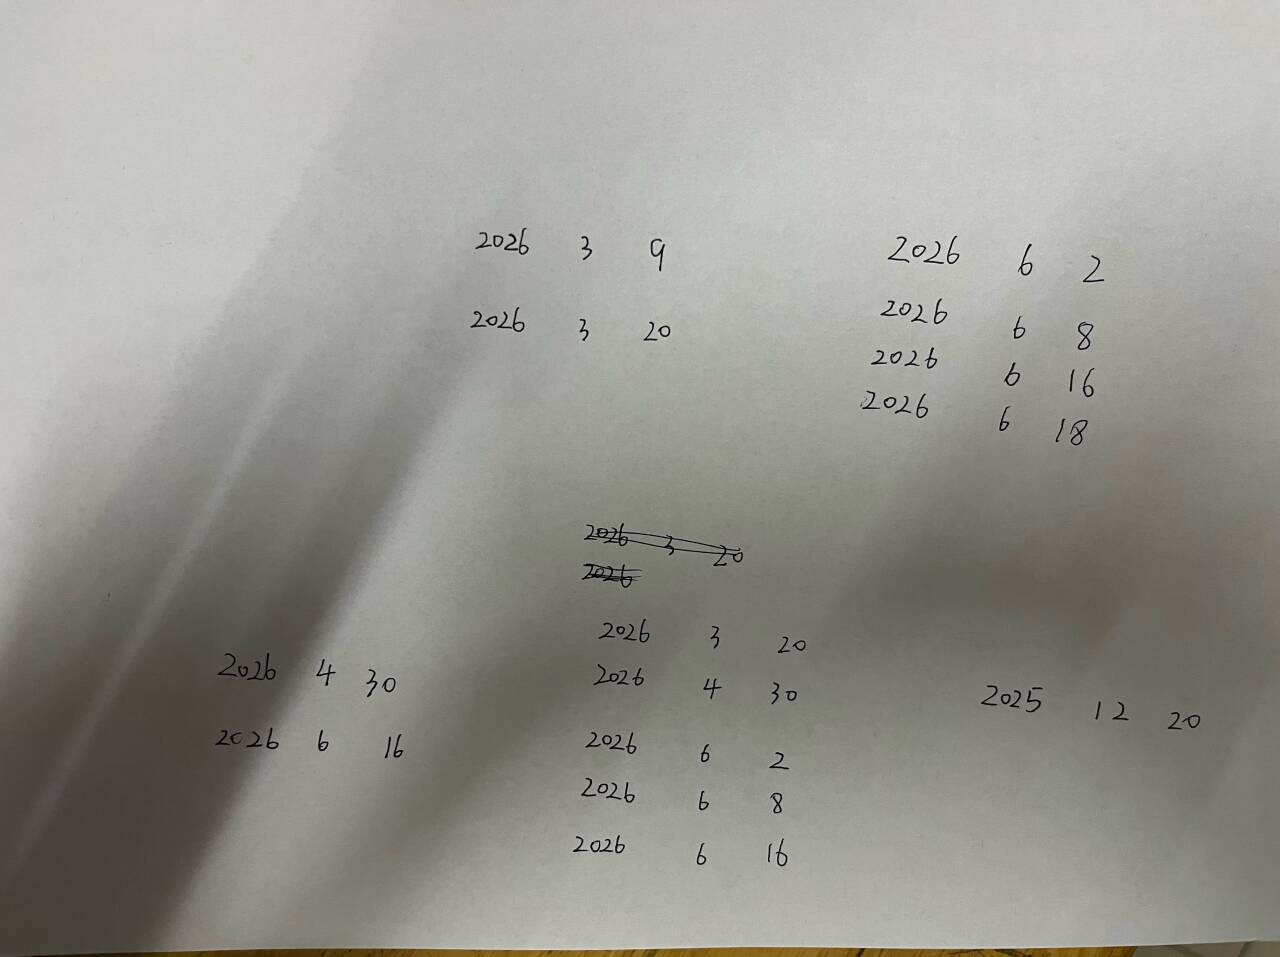 2026 3 9
2026 3 20
2026 6 2
2026 6 8
2026 6 16
2026 6 18
2026 3 20
2026
2026 4 30
2026 6 16
2026 3 20
2026 4 30
2026 6 2
2026 6 8
2026 6 16
2025 12 20